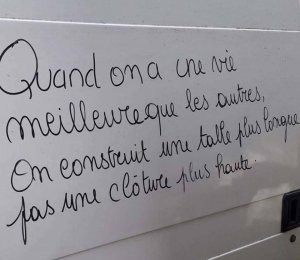 Quand on a une vie
meilleure que les autres,
On construit une table plus longue
pas une clôture plus haute.